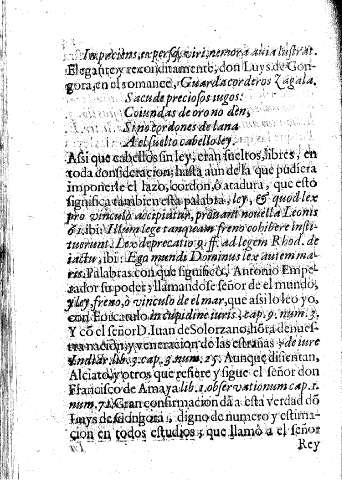 Impaciens, expersq, viri, nemora auia lustrat.
Elegante, y reconditamente, don Luys de Gon-
gora, en el romance, Guarda corderos Zagala.
Sacude preciosos iugos:
Coiundas de oro no den,
Sino cordones de lana
A el suelto cabello ley.
Assi que cabellos sin ley, eran sueltos, libres, en
toda consideracion; hasta aun de la que pudiera
imponerle el lazo, cordon, ó atadura, que esto
significa tambien esta palabra, ley, & quod lex
pro vinculo accipiatur, probant nouella Leonis
61. ibi: Illum lege tanquam freno cohibere insti-
tuerunt. Lex deprecatio 9. ff. ad legem Rhod. de
iactu, ibi: Ego mundi Dominus lex autem ma-
ris. Palabras con que significó, Antonio Empe-
rador su poder, y llamandose señor de el mundo,
y ley, freno, ò vinculo de el mar, que assi lo leo yo,
con Foscarulo in cupidine iuris, cap. 9. num. 3.
Y cõ el señor D. Iuan de Solorzano, hõra de nues-
tra nacion, y veneracion de las estrañas, de iure
Indiar. lib. 3. cap. 3. num. 25. Aunque disientan,
Alciato, y otros que refiere y sigue el señor don
Francisco de Amaya lib. 1. obseruationum cap. 1.
num. 71. Gran confirmacion dà a esta verdad dõ
Luys de Gongora, digno de numero y estima-
cion en todos estudios; que llamò a el señor
Rey